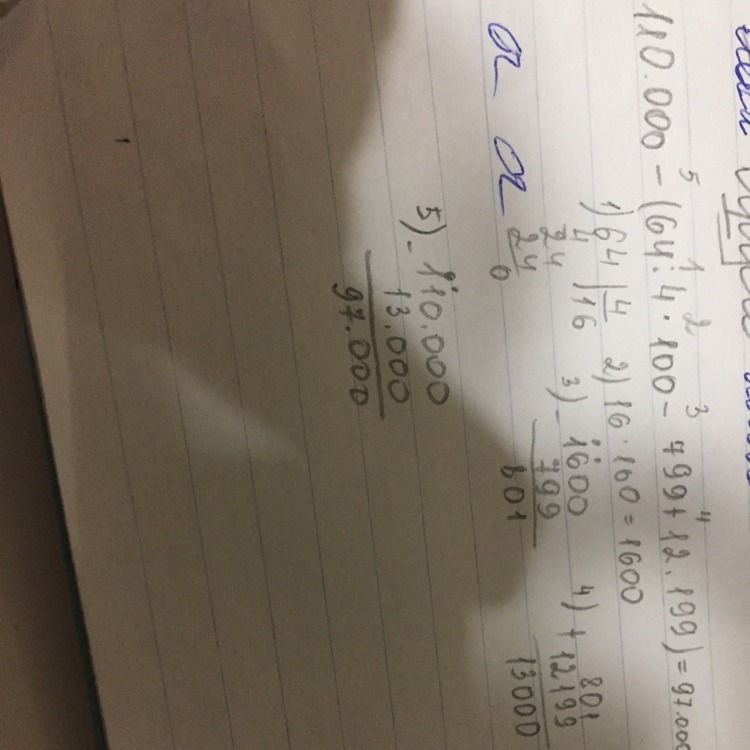 110.000 - (64 : 4 · 100 - 799 + 12.199) = 97.000
5 1 2 3 4
1) 64 | 4
4 | 16
24
24
0
2) 16 · 160 = 1600
3) - 1600
799
801
4) + 801
12199
13000
5) - 110.000
13.000
97.000